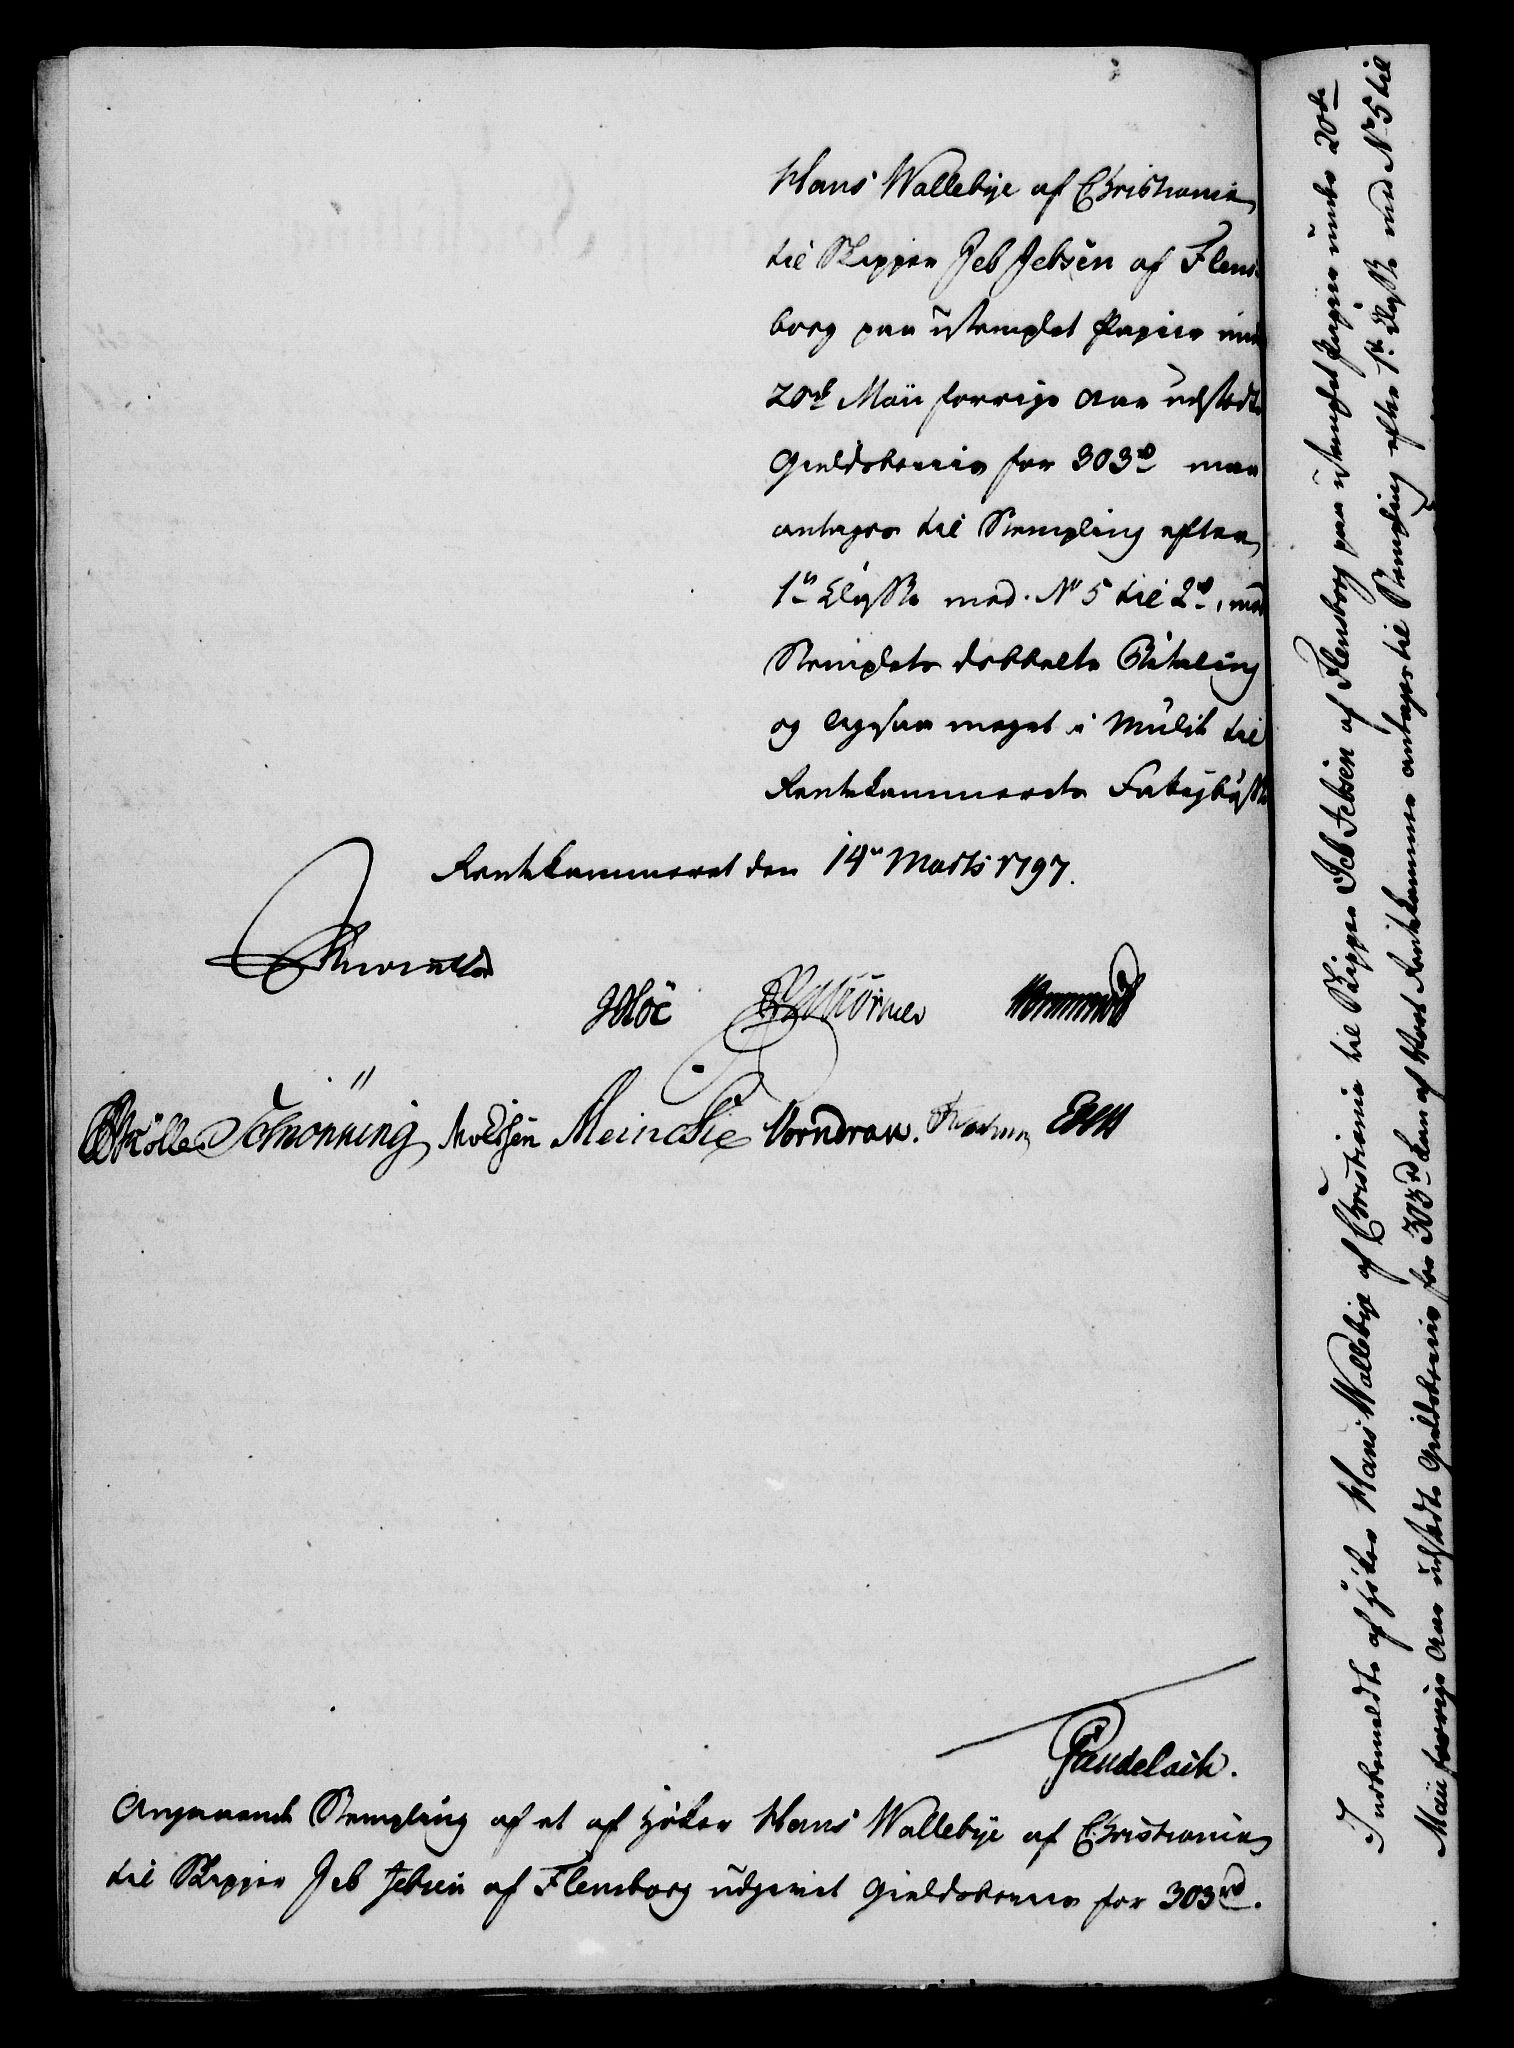 Hans Wallebÿe af Christiania
til Skipper Jeb Jebsen af Flens-
borg paa ustemplet Papiir under
20de Maii forrige Aar udstedte
Gieldsbeviis for 303 rd maa
antages til Stempling efter
1te Classe med No 5 til 2 rd, mod
Stemplets dobbelte Betaling
og ligesaa meget i Mulct til
Rentekammerets Fattigbøsse
Rentekammeret den 14de Marts 1797.
Hoë
Schönning Meincke Vorndran.
Pauelsich.
Angaaende Stempling af et af Høker Hans Wallebÿe af Christiania
til Skipper Jeb Jebsen af Flensborg udgivet Gieldsbeviis for 303 rd.
Indbemeldte af Høker Hans Wallebÿe af Christiania til Skipper Jeb Jebsen af Flensborg paa ustemplet Papiir under 20de
Maii forrige Aar udstedte Gieldsbeviis for 303 rd kan af Vort Rentekammer antages til Stempling efter 1te Classe med No 5 til